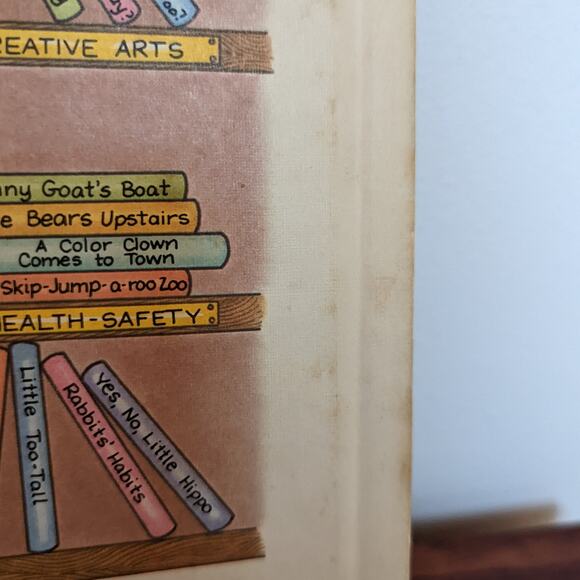 y?
oo?
REATIVE ARTS
nny Goat's Boat
e Bears Upstairs
A Color Clown
Comes to Town
Skip-Jump-a-roo Zoo
EALTH-SAFETY
Little Too-Tall
Rabbits' Habits
Yes, No, Little Hippo